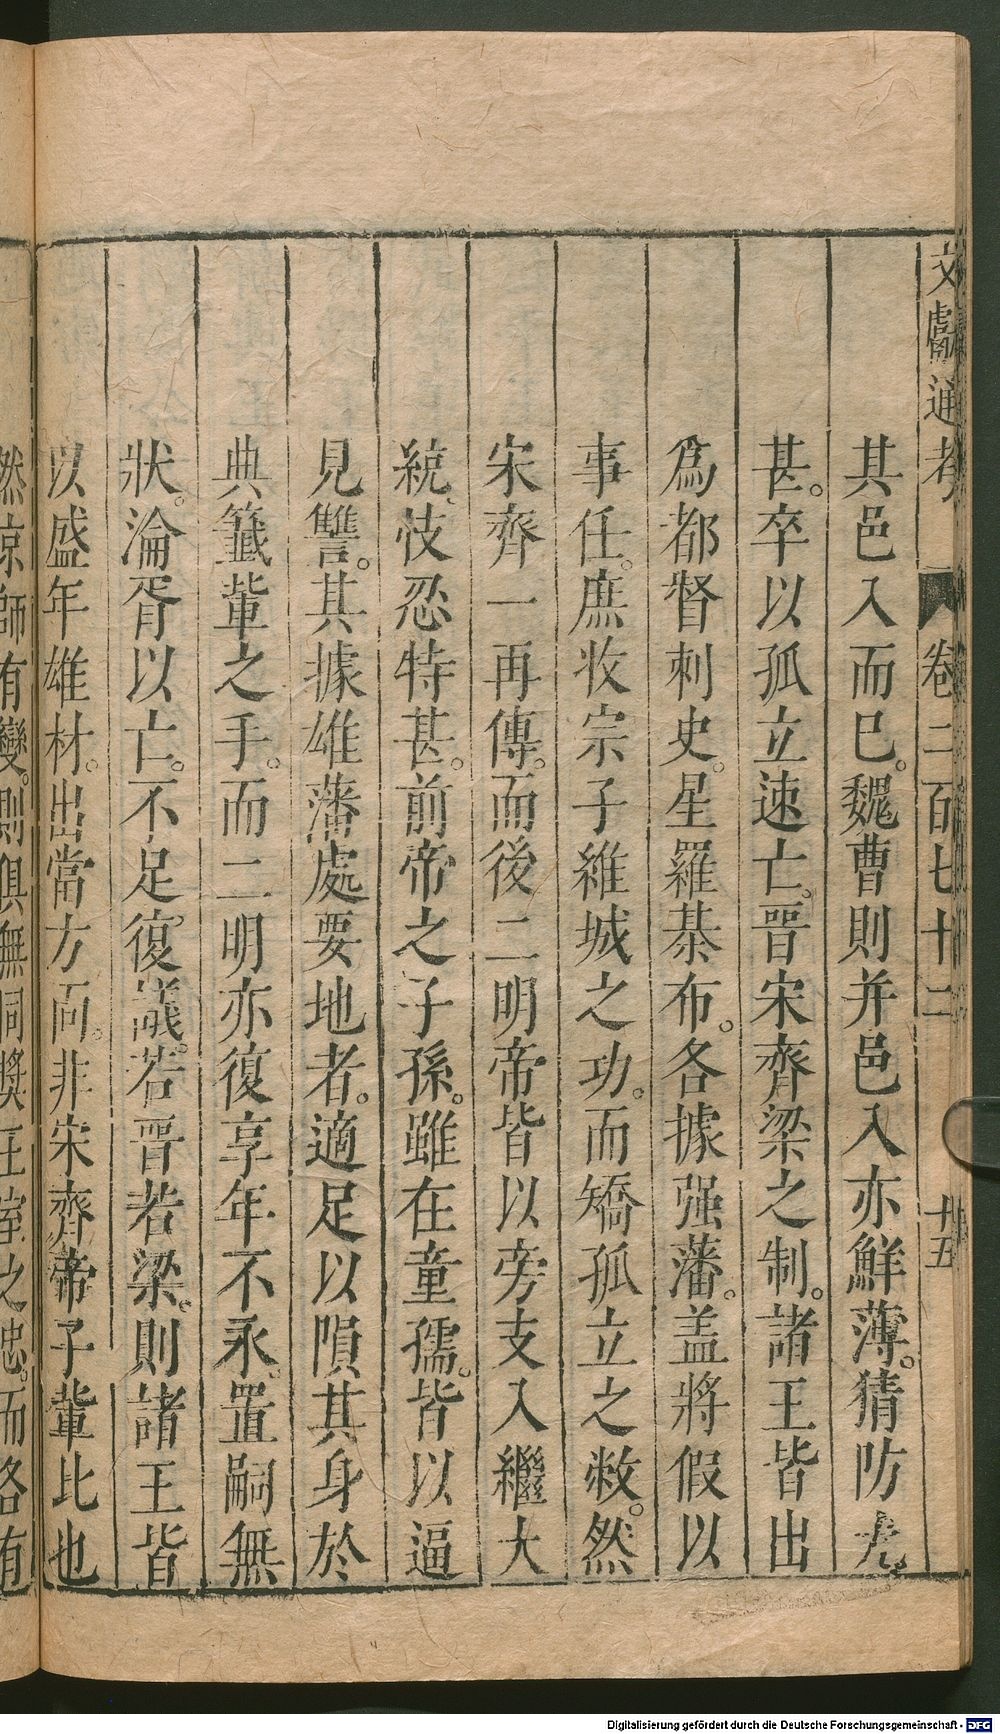 文獻通考 卷二百七十二 十五
其邑入而已。魏曹則并邑入亦鮮薄。猜防尤
甚。卒以孤立速亡。晋宋齊梁之制。諸王皆出
爲都督刺史。星羅棊布。各據强藩。盖將假以
事任。庶收宗子維城之功。而矯孤立之敝。然
宋齊一再傳。而後二明帝皆以旁支入繼大
統、忮忍特甚。前帝之子孫。雖在童孺。皆以逼
見讐。其據雄藩處要地者。適足以隕其身於
典籤輩之手。而二明亦復享年不永。置嗣無
狀。淪胥以亡。不足復議。若晋若梁。則諸王皆
以盛年雄材。出當方面。非宋齊帝子輩比也
然京師有變。則俱無同奬王室之忠。而各有
Digitalisierung gefördert durch die Deutsche Forschungsgemeinschaft - DFG